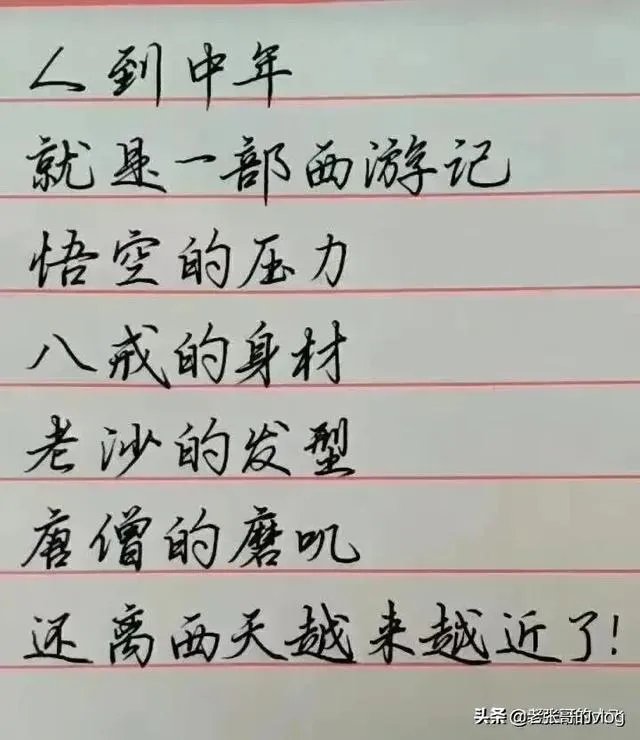 人到中年
就是一部西游记
悟空的压力
八戒的身材
老沙的发型
唐僧的磨叽
还离西天越来越近了!
头条 @老张哥的vlog